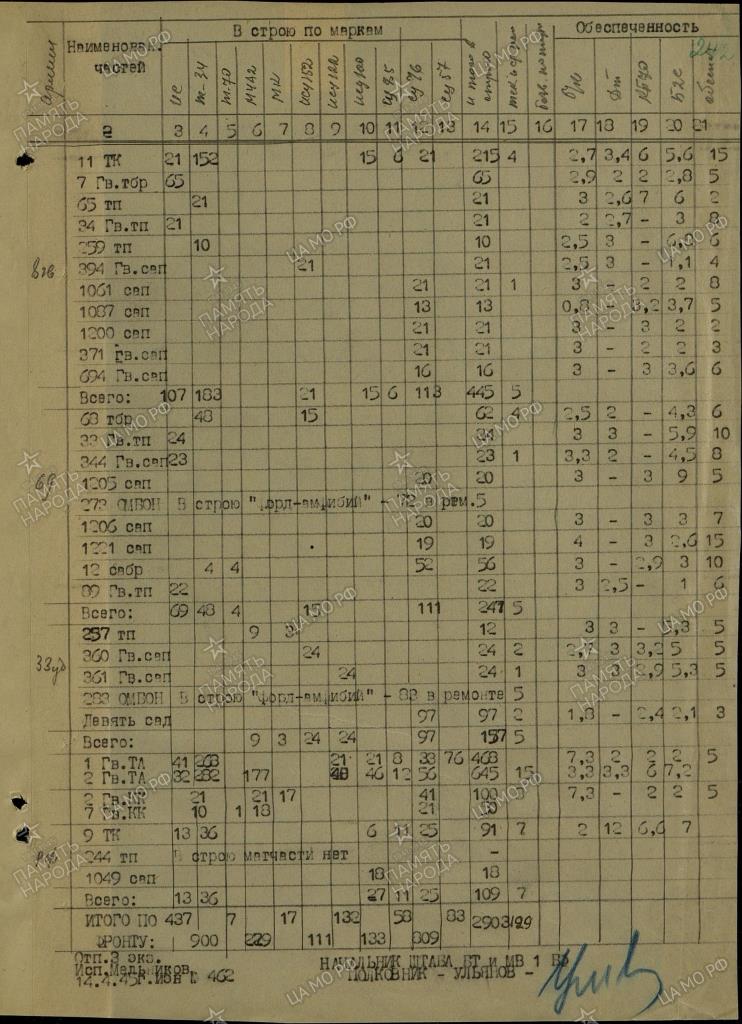 В строю по маркам Обеспеченность
Наименован. частей
армии ИС Т-34 Т-70 М4А2 МК ИСУ152 ИСУ122 ИСУ100 СУ85 СУ76 СУ57 Итого в строю
2 3 4 5 6 7 8 9 10 11 12 13 14 15 16 17 18 19 20 21
11 ТК 21 152 15 6 21 215 4 2,7 3,4 6 5,6 15
7 Гв.тбр 65 65 2,9 2 2 2,8 5
65 тп 21 21 3 2,6 7 6 2
34 Гв.тп 21 21 2 2,7 - 3 8
259 тп 10 10 2,5 3 - 6
394 Гв.сап 21 21 2,5 3 - 1,1 4
1061 сап 21 21 1 3 - 2 2 8
1087 сап 13 13 0,8 - 3,2 3,7 5
1200 сап 21 21 3 - 3 2 2
371 Гв.сап 21 21 3 - 2 2 3
694 Гв.сап 16 16 3 - 3 3,6 6
Всего: 107 183 21 15 6 113 445 5
68 тбр 48 15 62 4 2,5 2 - 4,3 6
33 Гв.тп 24 24 3 3 - 5,9 10
344 Гв.сап 23 23 1 3,3 2 - 4,5 8
69
1205 сап 20 20 3 - 3 9 5
273 ОМБОН В строю "форд-амфибий" - в рем.5
1206 сап 20 20 3 - 3 3 7
1221 сап 19 19 4 - 3 2,6 15
12 сабр 4 4 52 56 3 - 2,9 3 10
89 Гв.тп 22 22 3 2,5 - 1 6
Всего: 69 48 4 15 111 247 5
257 тп 9 3 12 3 3 - 5
360 Гв.сап 24 24 2 2,7 3 3,2 5 5
33
361 Гв.сап 24 24 1 3 3 2,9 5,3 5
283 ОМБОН В строю "форд-амфибий" - 83 в ремонте 5
Девять сад 97 97 2 1,8 - 2,4 2,1 3
Всего: 9 3 24 24 97 157 5
1 Гв.ТА 41 268 21 21 8 33 76 468 7,3 2 2 2 5
2 Гв.ТА 32 282 177 48 46 12 56 645 15 3,3 3,3 6 7,2
2 Гв.КК 21 21 17 41 100 7,3 - 2 2 5
7 Гв.КК 10 1 18 21
9 ТК 13 36 6 11 25 91 7 2 12 6,6 7
244 тп В строю матчасти нет -
1049 сап 18 18
Всего: 13 36 27 11 25 109 7
ИТОГО ПО 437 7 17 132 58 83 2903 129
ФРОНТУ: 900 229 111 133 809
Отп.3 экз.
Исп.Мельников
14.4.45г. 462
НАЧАЛЬНИК ШТАБА БТ и МВ 1 БФ
ПОЛКОВНИК - УЛЬЯНОВ -
ПАМЯТЬ НАРОДА
ЦАМО РФ